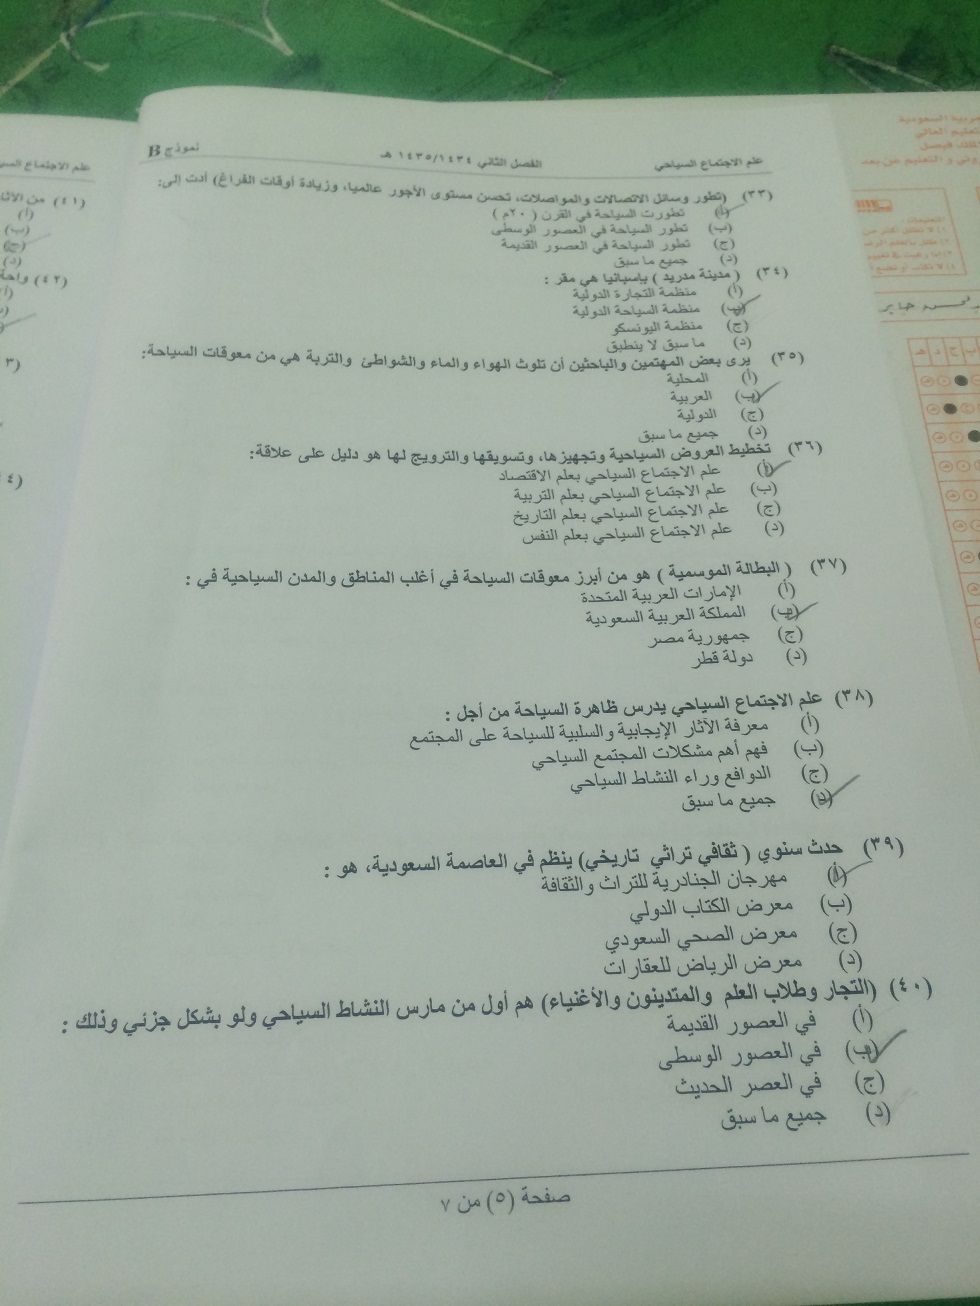 علم الاجتماع السياحي
الفصل الثاني ١٤٣٥/١٤٣٤ هـ
نموذج B
(٣٣) (تطور وسائل الاتصالات والمواصلات، تحسن مستوى الأجور عالميا، وزيادة أوقات الفراغ) أدت إلى:
(أ) تطورت السياحة في القرن (٢٠م)
(ب) تطور السياحة في العصور الوسطى
(ج) تطور السياحة في العصور القديمة
(د) جميع ما سبق
(٣٤) (مدينة مدريد) بإسبانيا هي مقر :
(أ) منظمة التجارة الدولية
(ب) منظمة السياحة الدولية
(ج) منظمة اليونسكو
(د) ما سبق لا ينطبق
(٣٥) يرى بعض المهتمين والباحثين أن تلوث الهواء والماء والشواطئ والتربة هي من معوقات السياحة:
(أ) المحلية
(ب) العربية
(ج) الدولية
(د) جميع ما سبق
(٣٦) تخطيط العروض السياحية وتجهيزها، وتسويقها والترويج لها هو دليل على علاقة:
(أ) علم الاجتماع السياحي بعلم الاقتصاد
(ب) علم الاجتماع السياحي بعلم التربية
(ج) علم الاجتماع السياحي بعلم التاريخ
(د) علم الاجتماع السياحي بعلم النفس
(٣٧) ( البطالة الموسمية ) هو من أبرز معوقات السياحة في أغلب المناطق والمدن السياحية في :
(أ) الإمارات العربية المتحدة
(ب) المملكة العربية السعودية
(ج) جمهورية مصر
(د) دولة قطر
(٣٨) علم الاجتماع السياحي يدرس ظاهرة السياحة من أجل :
(أ) معرفة الآثار الإيجابية والسلبية للسياحة على المجتمع
(ب) فهم أهم مشكلات المجتمع السياحي
(ج) الدوافع وراء النشاط السياحي
(د) جميع ما سبق
(٣٩) حدث سنوي ( ثقافي تراثي تاريخي) ينظم في العاصمة السعودية، هو :
(أ) مهرجان الجنادرية للتراث والثقافة
(ب) معرض الكتاب الدولي
(ج) معرض الصحي السعودي
(د) معرض الرياض للعقارات
(٤٠) (التجار وطلاب العلم والمتدينون والأغنياء) هم أول من مارس النشاط السياحي ولو بشكل جزئي وذلك :
(أ) في العصور القديمة
(ب) في العصور الوسطى
(ج) في العصر الحديث
(د) جميع ما سبق
صفحة (٥) من ٧
علم الاجتماع
(٤١) من
(أ)
(ب)
(ج)
(د)
(٤٢)
(أ)
العربية السعودية
التعليمات